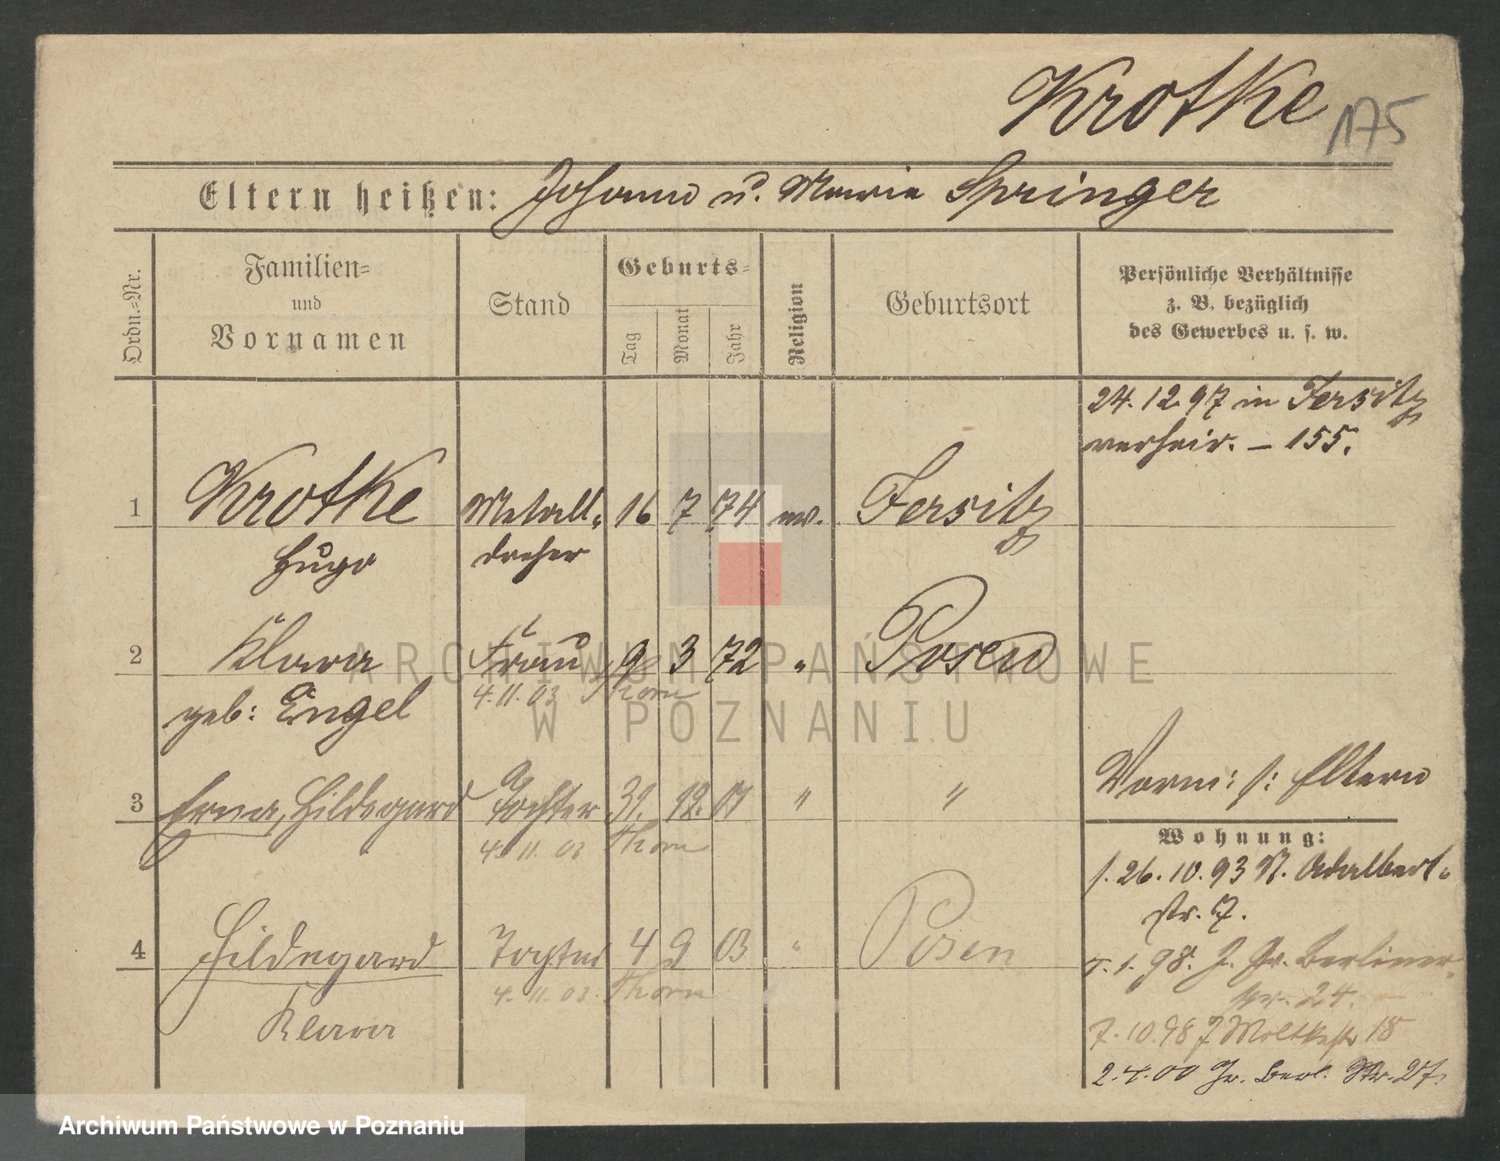 Krotke 175
Eltern heißen: Johann u. Marie Springer
Ordn.-Nr.
Familien-
und
Vornamen
Stand
Geburts-
Tag
Monat
Jahr
Religion
Geburtsort
Persönliche Verhältnisse
z. B. bezüglich
des Gewerbes u. s. w.
24. 12 97 in Jersitz
verheir. – 155.
1 Krotke Metall- 16 7 74 ev. Jersitz
Hugo dreher
2 Klara Frau 9 3 72 " Posen
4. 11. 03 Thorn
geb: Engel
Vorm: s: Eltern
3 Erna, Hildegard Tochter 31. 12. 01 " "
4. 11. 03 Thorn
Wohnung:
s. 26. 10. 93 N. Adalbert-
str. 7.
4 Hildegard Tochter 4 9 03 " Posen
1. 98. J. Gr. Berliner-
str. 24.
4. 11. 03. Thorn
Klara
7. 10. 98 J Moltkestr 18
2. 4. 00 Gr. Berl. Str. 27.
ARCHIWUM PAŃSTWOWE
W POZNANIU
Archiwum Państwowe w Poznaniu